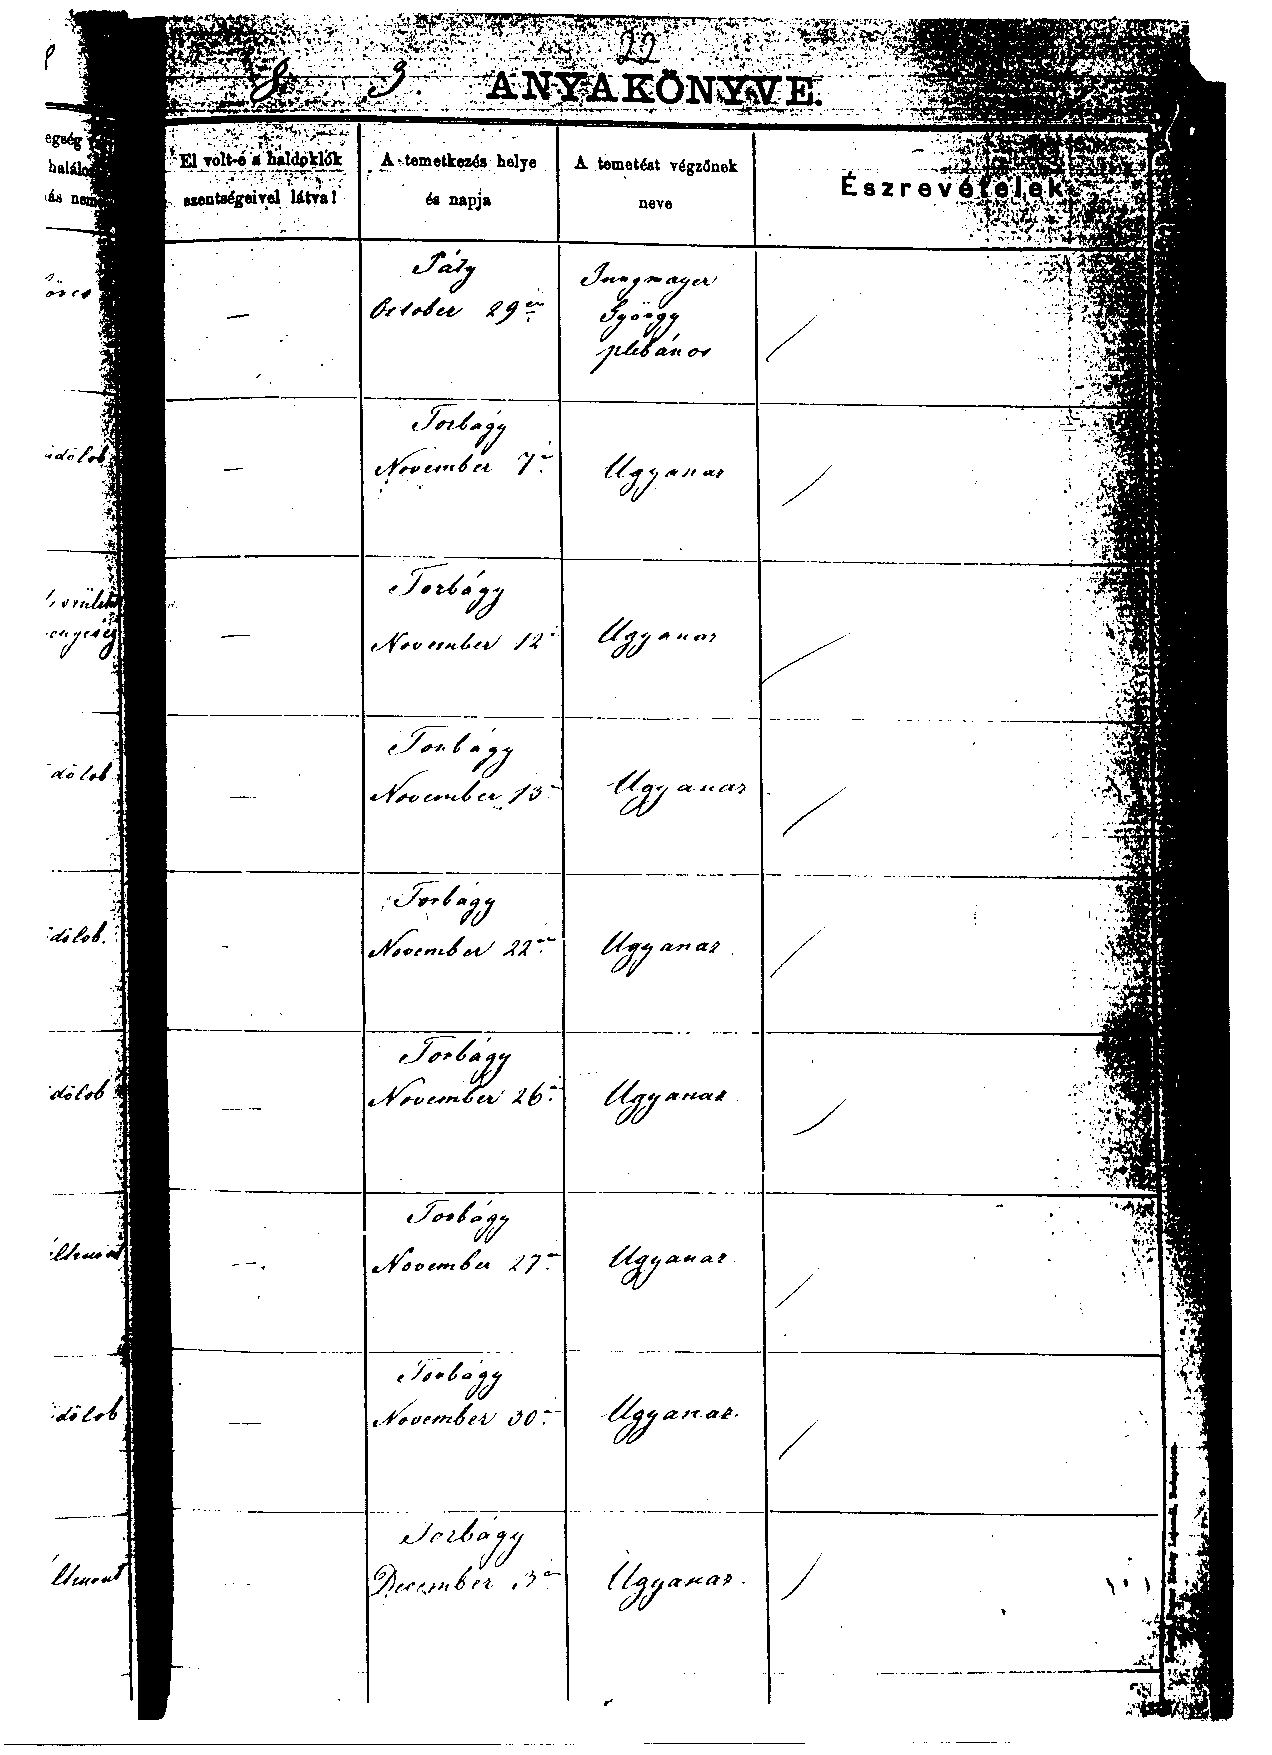 22
8 3. ANYAKÖNYVE.
egség
halálo
ás nem
El volt-é a haldoklók
szentségeivel látva!
A temetkezés helye
és napja
A temetést végzőnek
neve
Észrevételek
Páty
October 29én
Jungmayer
György
plébános
—
Torbágy
November 7én
Ugyanaz
idölob
—
Torbágy
November 12
Ugyanaz
—
Torbágy
November 13
Ugyanaz
dölob
—
Torbágy
November 22én
Ugyanaz
dölob.
-
Torbágy
November 26
Ugyanaz
dölob
—
Torbágy
November 27
Ugyanaz
—.
Torbágy
November 30
Ugyanaz.
dölob
—
Torbágy
December 3
Ugyanaz.